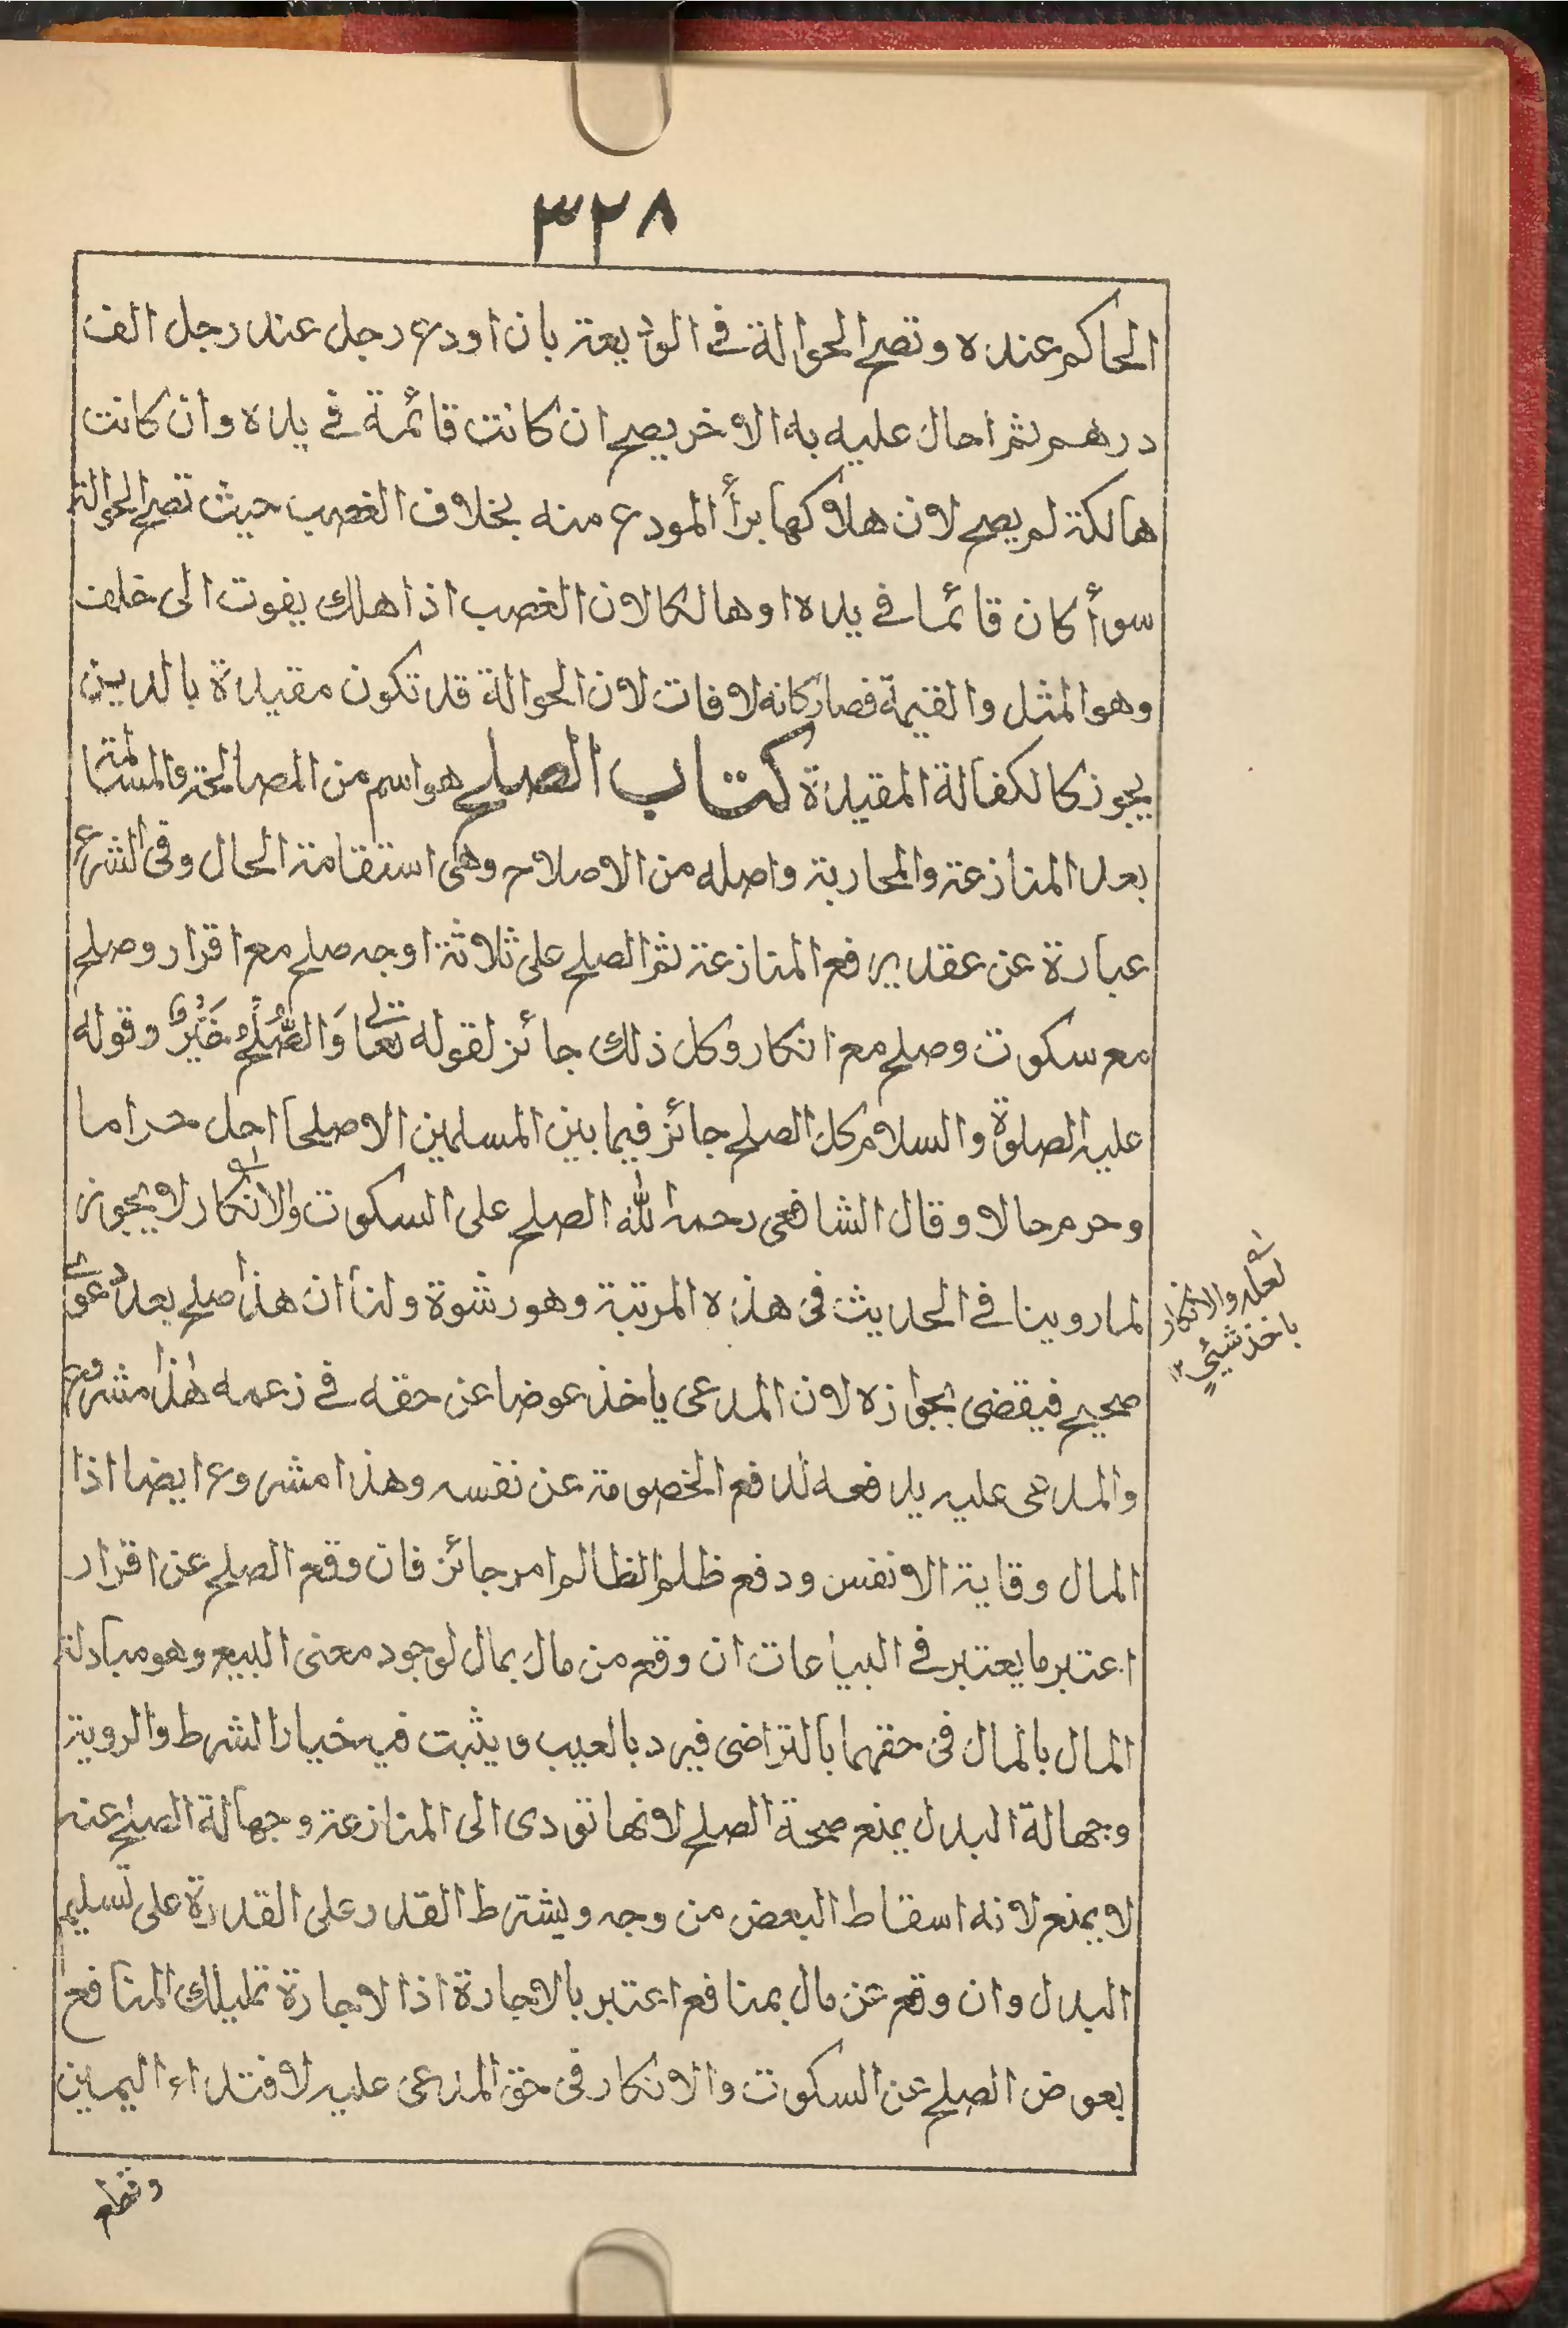 ٣٢٨
الحاكم عنده وتصح الحوالة فى الوديعة بان اودع رجل عند رجل الف
درهم ثم احال عليه به الاخر يصح ان كانت قائمة فى يده وان كانت
هالكة لم يصح لان هلاكها برأ المودع منه بخلاف الغصب حيث تصح الحوالة
سوأ كان قائما فى يده او هالكا لان الغصب اذا هلك يفوت الى خلف
وهو المثل والقيمة فصار كانه لا فات لان الحوالة قد تكون مقيدة بالدين
يجوز كالكفالة المقيدة كتاب الصلح هو اسم من المصالحة والمسالمة
بعد المنازعة والمحاربة واصله من الاصلاح وهى استقامة الحال وفى الشرع
عبارة عن عقد يرفع المنازعة ثم الصلح على ثلاثة اوجه صلح مع اقرار وصلح
مع سكوت وصلح مع انكار وكل ذلك جائز لقوله تعالى وَالصُّلْحُ خَيْرٌ وقوله
عليه الصلوة والسلام كل الصلح جائز فيما بين المسلمين الا صلحا احل حراما
وحرم حالا وقال الشافعى رحمه الله الصلح على السكوت والانكار لا يجوز
لما روينا فى الحديث فى هذه المرتبة وهو رشوة ولنا ان هذا صلح بعد دعوى
صحيح فيقضى بجوازه لان المدعى ياخذ عوضا عن حقه فى زعمه هذا مشروع
والمدعى عليه يدفعه لدفع الخصومة عن نفسه وهذا مشروع ايضا اذا
المال وقاية الانفس ودفع ظلم الظالم امر جائز فان وقع الصلح عن اقرار
اعتبر ما يعتبر فى البياعات ان وقع من مال بمال لوجود معنى البيع وهو مبادلة
المال بالمال فى حقهما بالتراضى فيرد بالعيب ويثبت فيه خيار الشرط والروية
وجهالة البدل يمنع صحة الصلح لانها تودى الى المنازعة وجهالة الصلح عنه
لا يمنع لانه اسقاط البعض من وجه ويشترط القدر على القدرة على تسليم
البدل وان وقع عن مال بمنافع اعتبر بالاجارة اذا الاجارة تمليك المنافع
بعوض الصلح عن السكوت والانكار فى حق المدعى عليه لافتداء اليمين
وقطع
لعله والانكار
باخذ شيئ ١٢